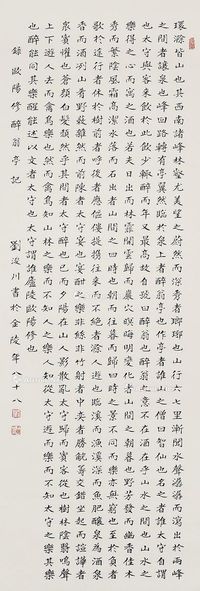 環滁皆山也其西南諸峰林壑尤美望之蔚然而深秀者瑯琊也山行六七里漸聞水聲潺潺而瀉出於兩峰
之間者讓泉也峰回路轉有亭翼然臨於泉上者醉翁亭也作亭者誰山之僧曰智仙也名之者誰太守自謂
也太守與客來飲於此飲少輒醉而年又最高故自號曰醉翁也醉翁之意不在酒在乎山水之間也山水之
樂得之心而寓之酒也若夫日出而林霏開雲歸而巖穴暝晦明變化者山間之朝暮也野芳發而幽香佳木
秀而繁陰風霜高潔水落而石出者山間之四時也朝而往暮而歸四時之景不同而樂亦無窮也至於負者
歌於途行者休於樹前者呼後者應傴僂提攜往來而不絕者滁人遊也臨溪而漁溪深而魚肥釀泉為酒泉
香而酒冽山肴野蔌雜然而前陳者太守宴也宴酣之樂非絲非竹射者中弈者勝觥籌交錯起坐而諠譁者
眾賓懽也蒼顏白髮頹然乎其間者太守醉也已而夕陽在山人影散亂太守歸而賓客從也樹林陰翳鳴聲
上下遊人去而禽鳥樂也然而禽鳥知山林之樂而不知人之樂人知從太守遊而樂而不知太守之樂其樂
也醉能同其樂醒能述以文者太守也太守謂誰廬陵歐陽修也
錄歐陽修醉翁亭記 劉浚川書於金陵 年八十八